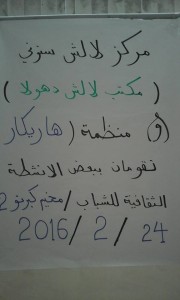 مركز لالش سنوني
( مكتب لالش دهولا )
(و) منظمة (هاريكار
تقومان ببعض الانشطة
الثقافية للشباب / مخيم كبرتو 2
24 / 2 / 2016